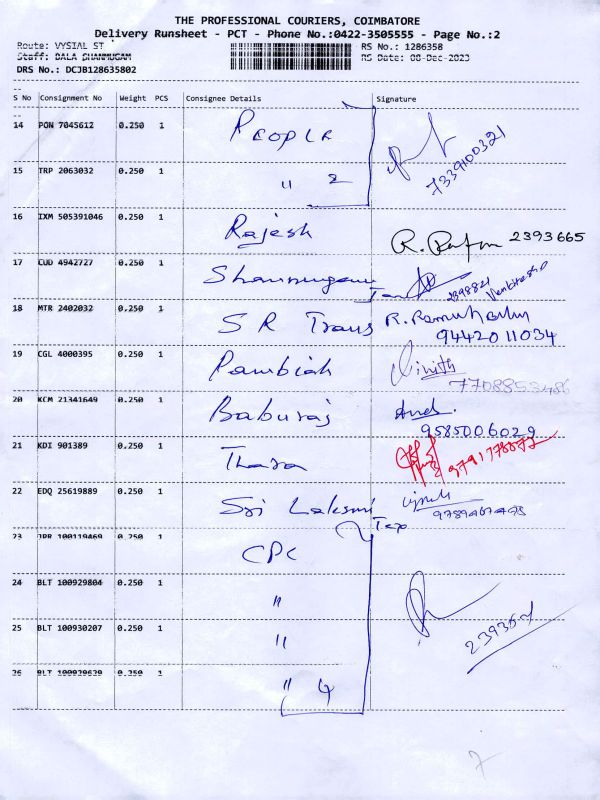 THE PROFESSIONAL COURIERS, COIMBATORE
Delivery Runsheet - PCT - Phone No.:0422-3505555 - Page No.:2
Route: VYSIAL ST RS No.: 1286358
Staff: BALA SHANMUGAM RS Date: 08-Dec-2023
DRS No.: DCJB128635802
S No Consignment No Weight PCS Consignee Details Signature
14 PON 7045612 0.250 1 PEOPLE
7339100321
15 TRP 2063032 0.250 1 " 2
16 IXM 505391046 0.250 1 Rajesh 2393665
17 CUD 4942727 0.250 1 Shanmugam 2398821
18 MTR 2402032 0.250 1 S R Trans
9442011034
19 CGL 4000395 0.250 1 Pambiah Vinith
7708853486
20 KCM 21341649 0.250 1 Baburaj
9585006029
21 KDI 901389 0.250 1 Thara
22 EDQ 25619889 0.250 1 Sri Laksmi Tex
23 JPR 100119469 0.250 1 CPC
24 BLT 100929804 0.250 1 "
25 BLT 100930207 0.250 1 "
26 BLT 100929629 0.250 1 " 4
7